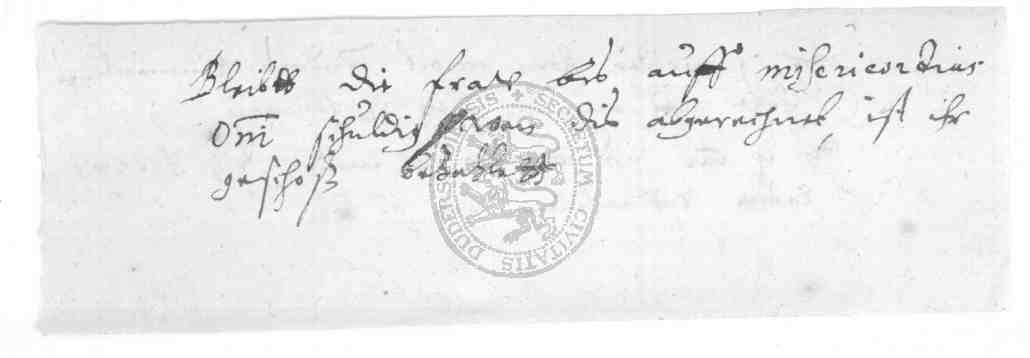 Bleibtt die fraw bis auff misericortias
Om̅ schuldig wan dis abgerechnet, ist ihr
geschoß bezahlett
SECRETUM CIVITATIS DUDERS